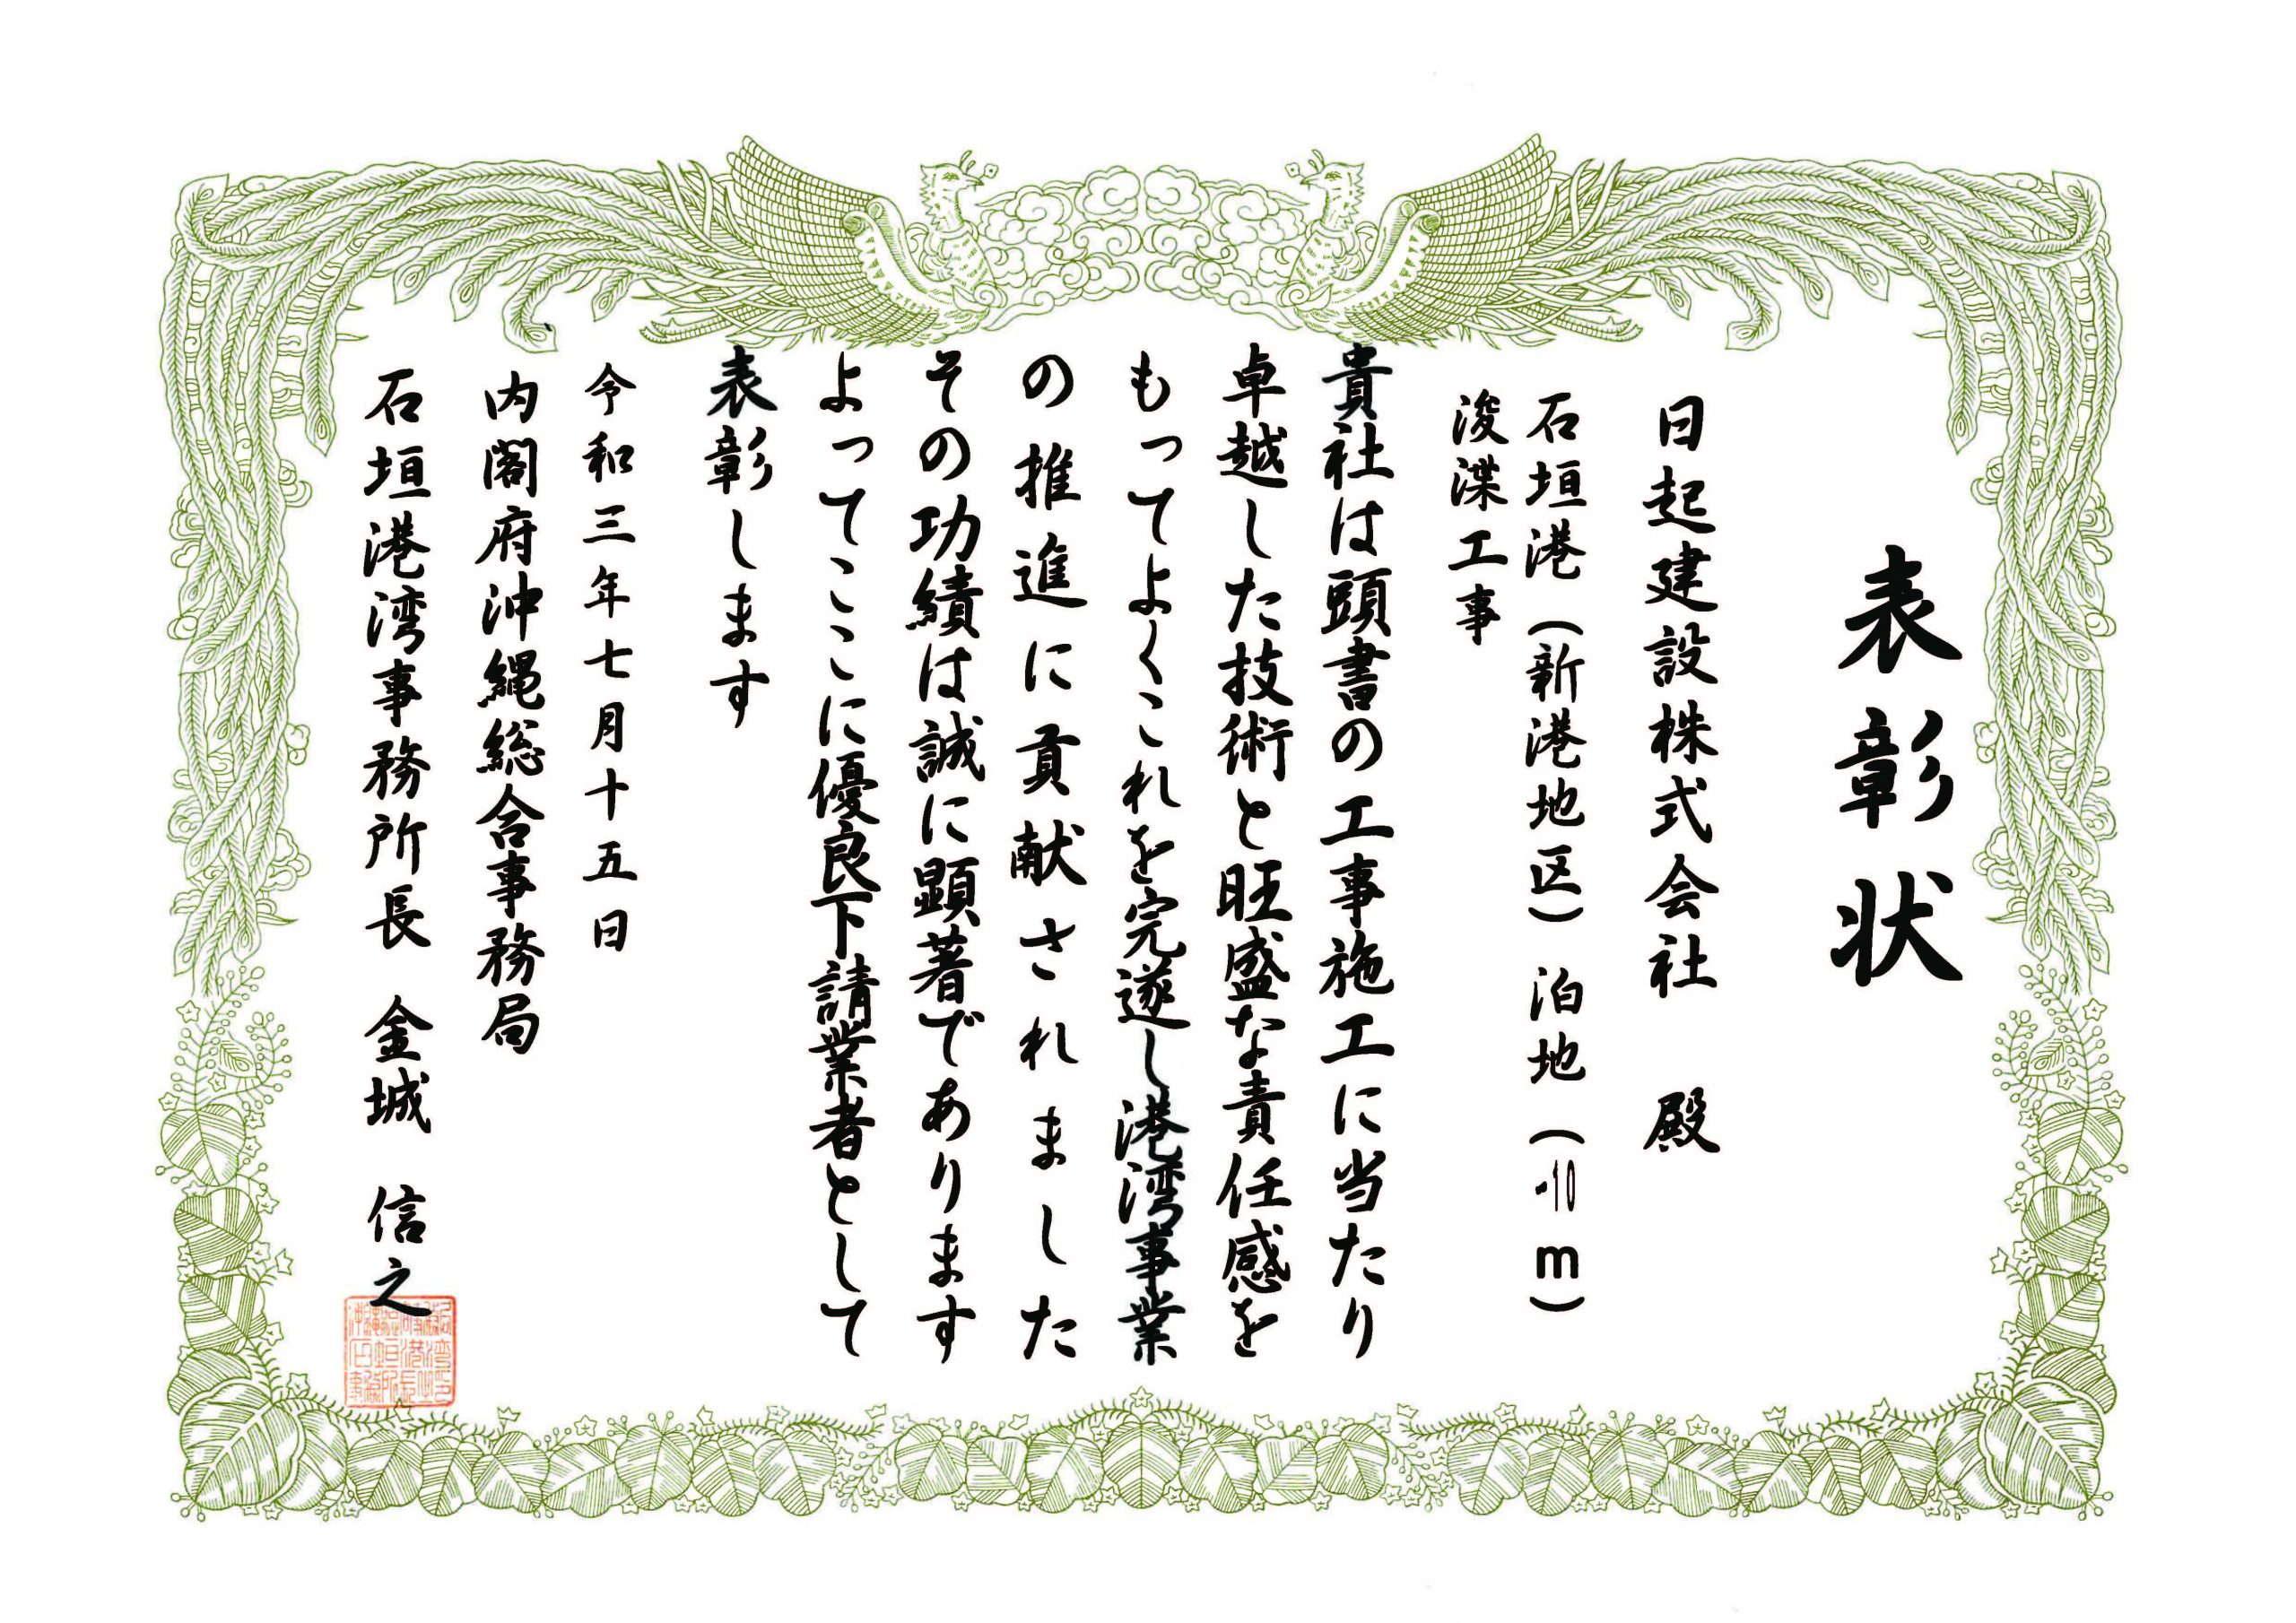 表彰状
日起建設株式会社　殿
石垣港（新港地区）泊地（-10m）
浚渫工事
貴社は頭書の工事施工に当たり
卓越した技術と旺盛な責任感を
もってよくこれを完遂し港湾事業
の推進に貢献されました
その功績は誠に顕著であります
よってここに優良下請業者として
表彰します
令和三年七月十五日
内閣府沖縄総合事務局
石垣港湾事務所長　金城　信之